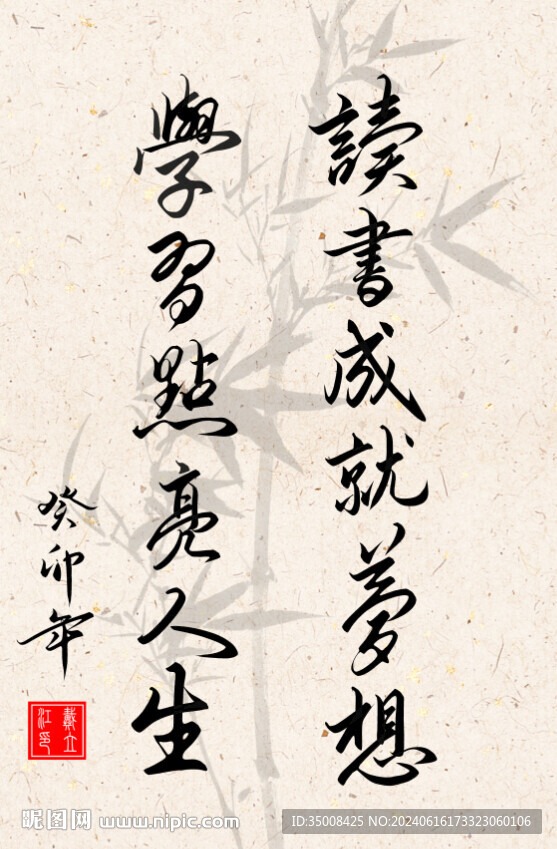 讀書成就夢想
學習點亮人生
癸卯年
戴立江印
昵图网 www.nipic.com
ID:35008425 NO:20240616173323060106